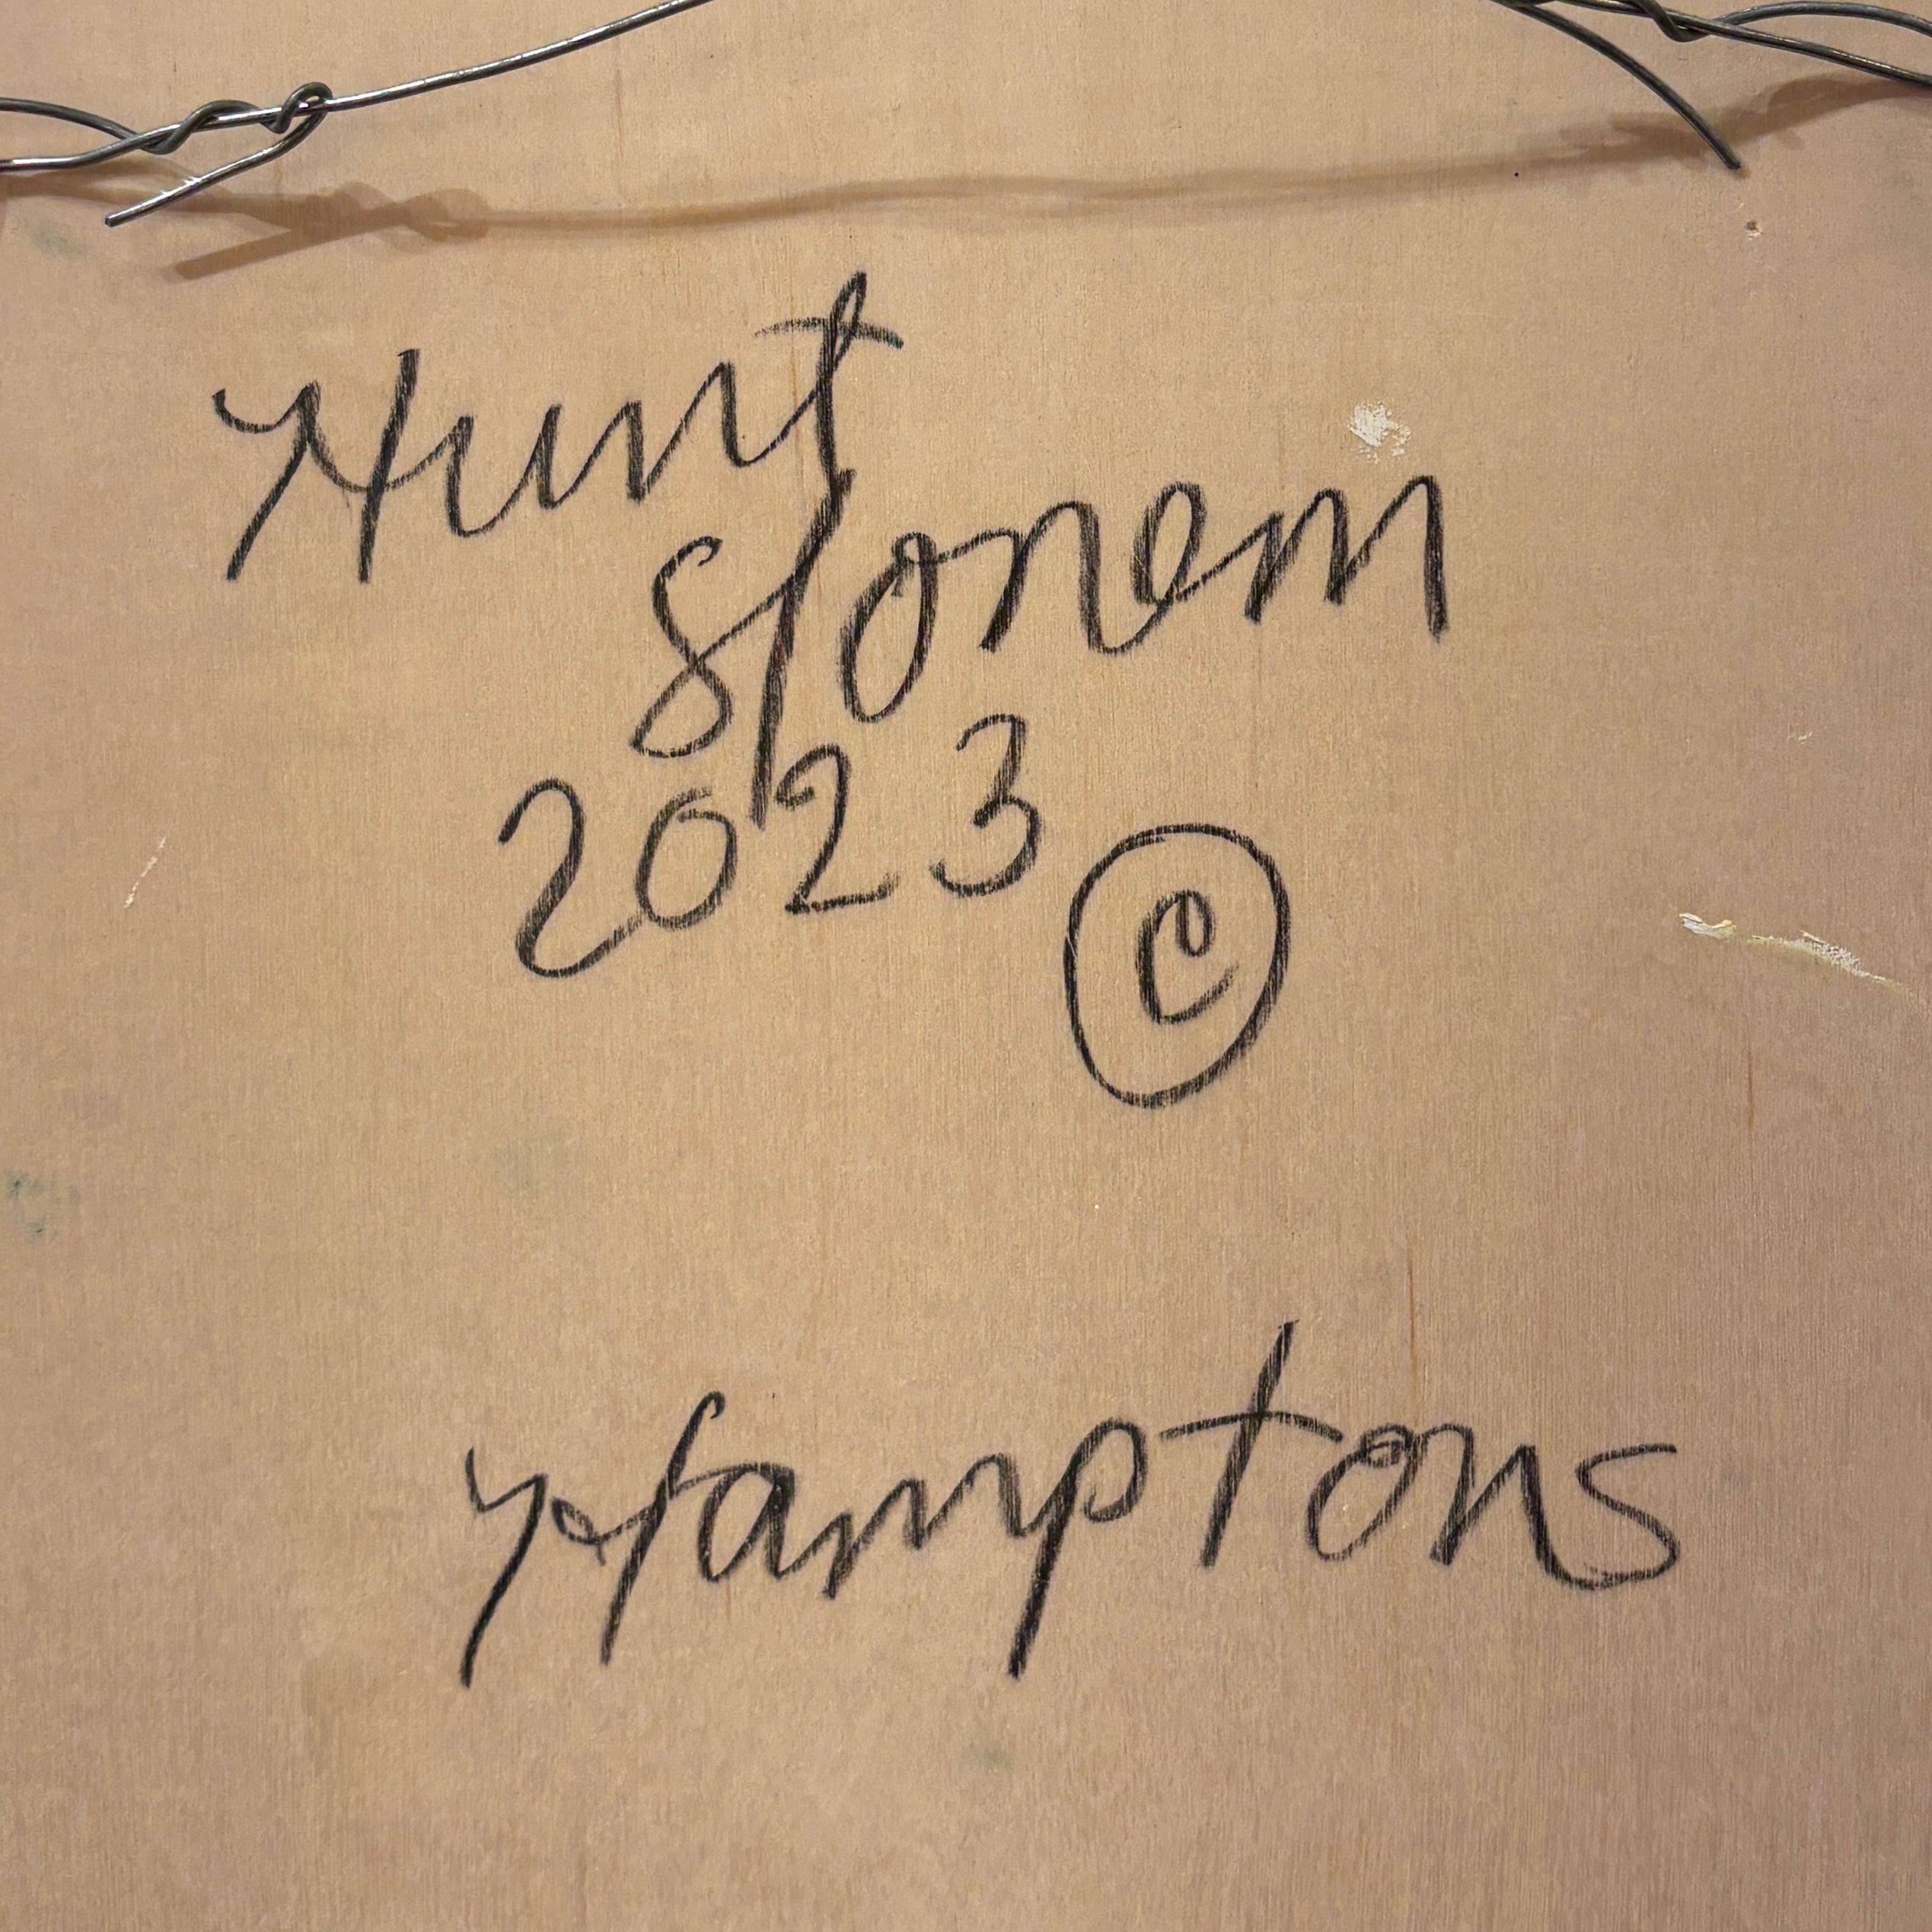 Hunt
Slonem
2023
©
Hamptons